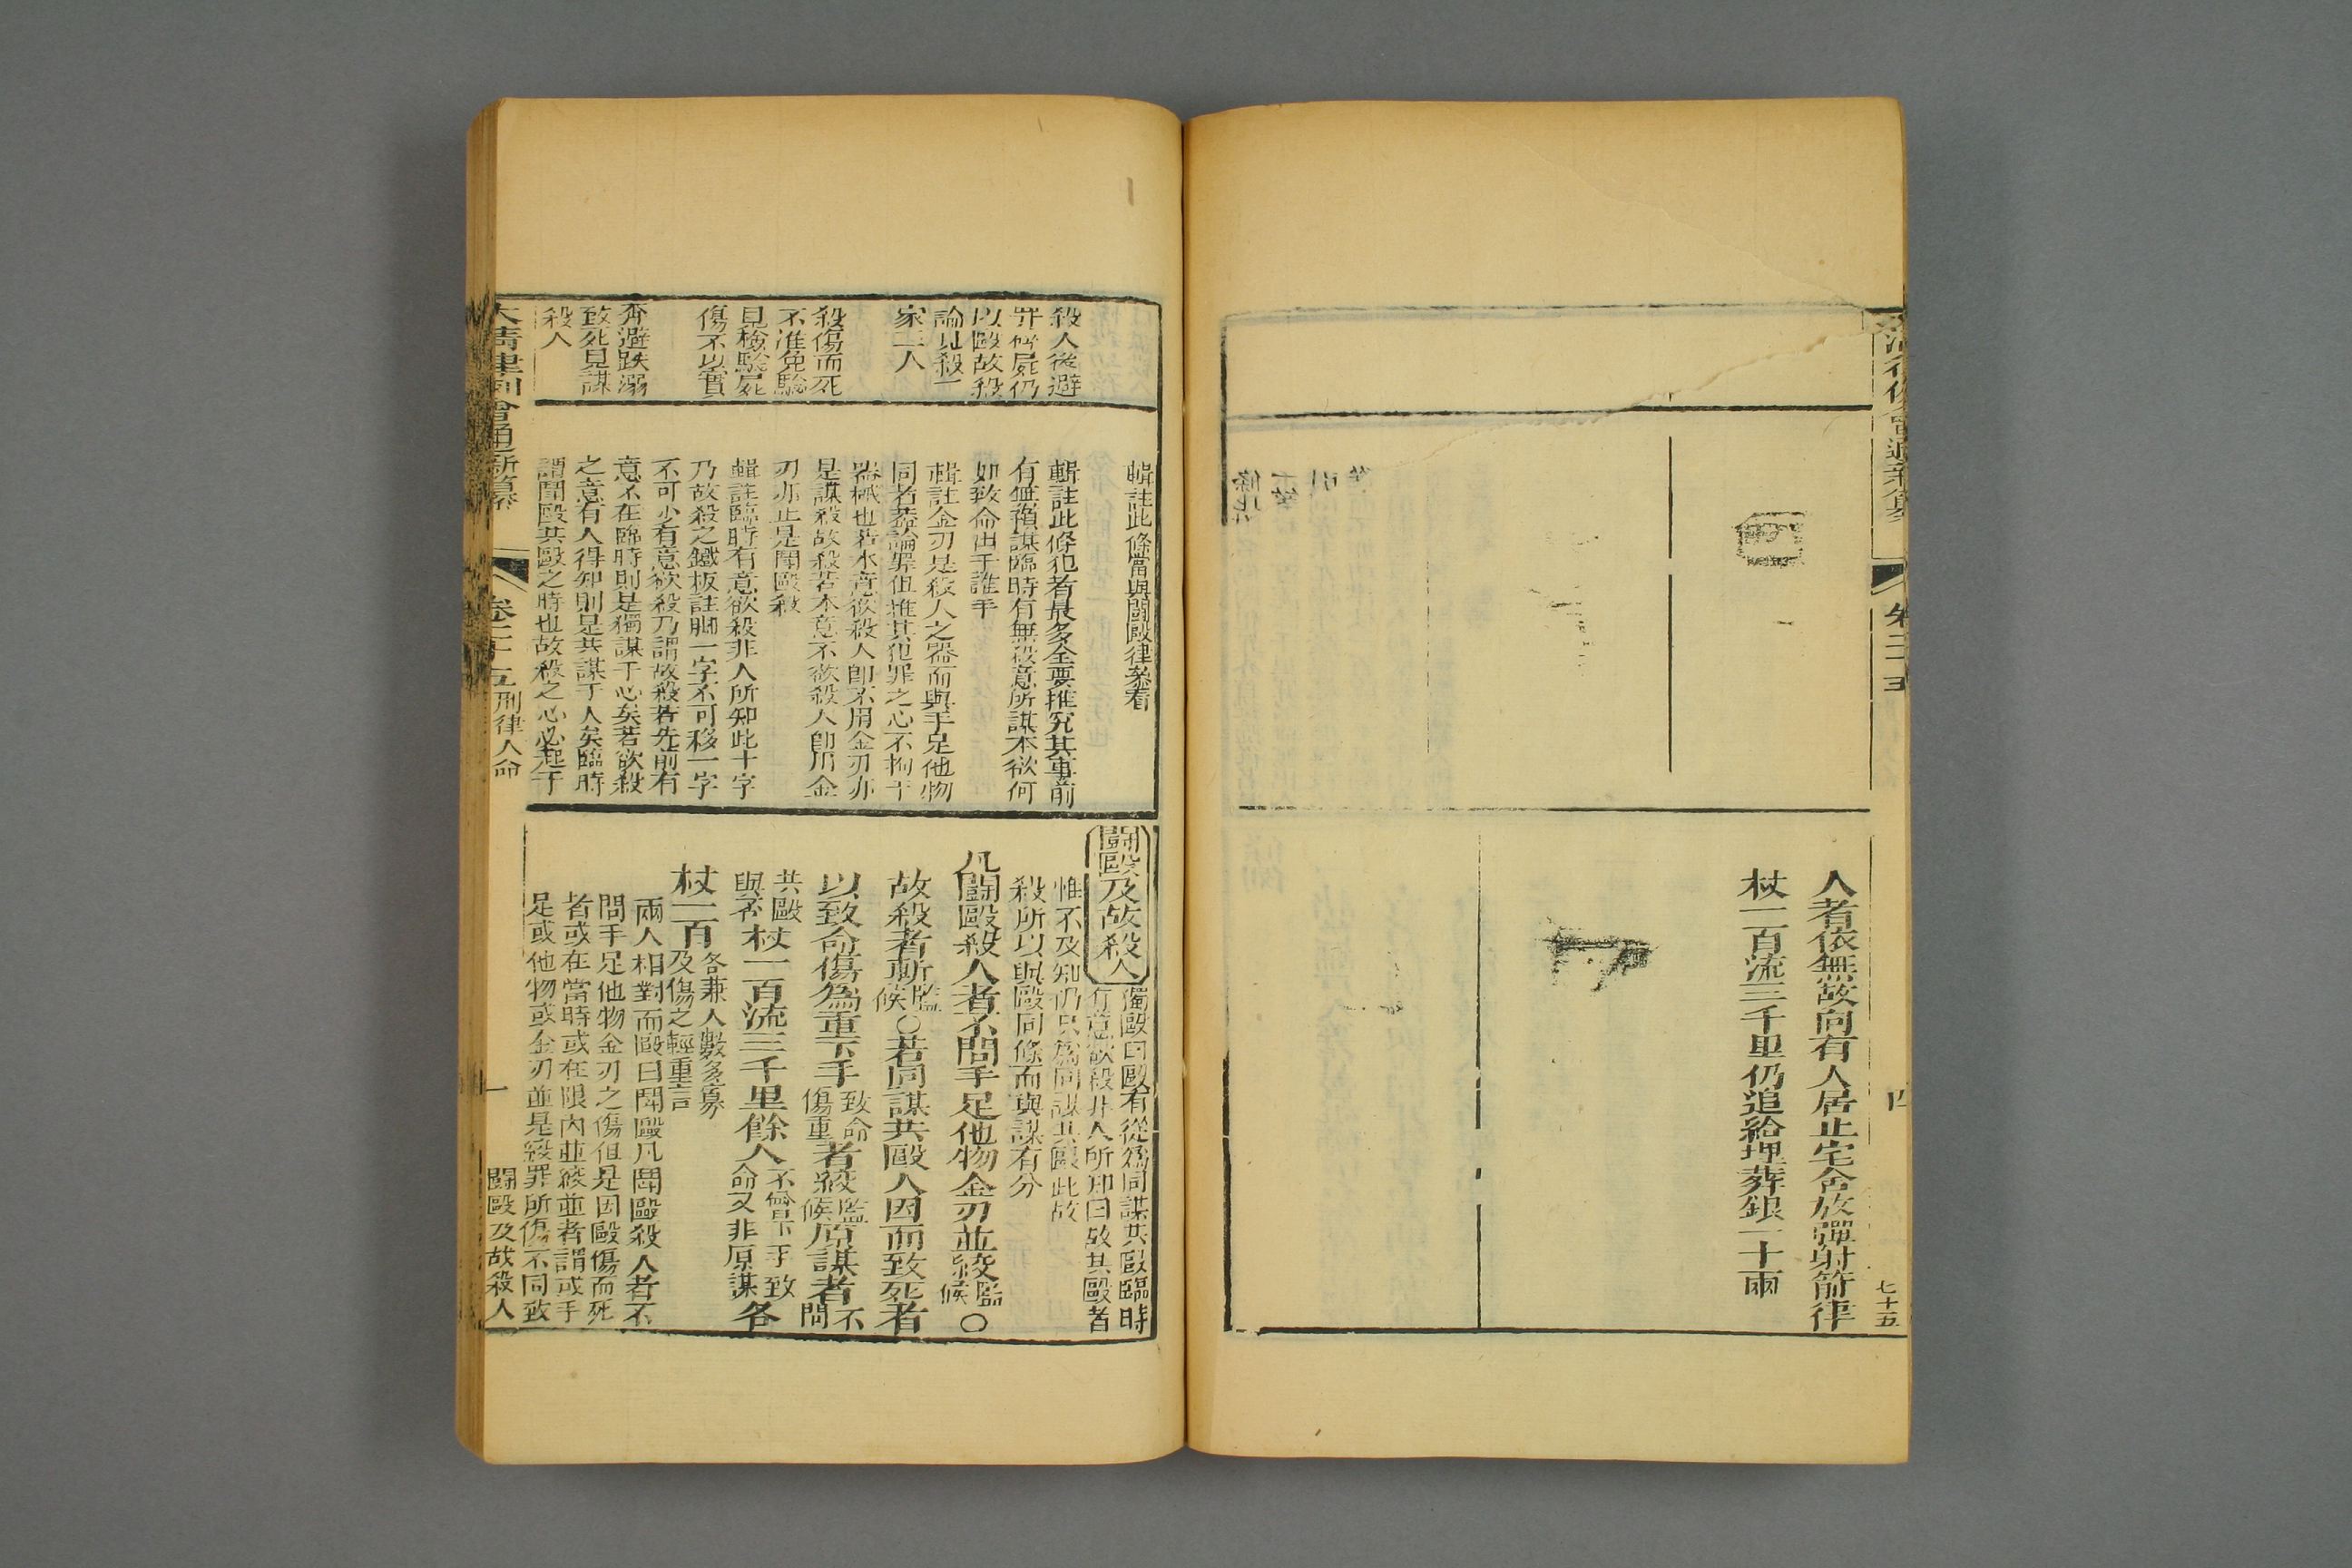 人者依無故向有人居止宅舍放彈射箭律
杖一百流三千里仍追給埋葬銀一十兩
七十五
殺人後避
罪棄屍仍
以毆故殺
論見殺一
家三人
殺傷而死
不准免驗
見檢驗屍
傷不以實
奔避跌溺
致死見謀
殺人
輯註此條當與鬬毆律叅看
輯註此條犯者最多全要推究其事前
有無預謀臨時有無殺意所謀本欲何
如致命出于誰手
輯註金刃是殺人之器而與手足他物
同者葢論罪但推其犯罪之心不拘于
器械也若本意欲殺人卽不用金刃亦
是謀殺故殺若本意不欲殺人卽用金
刃亦止是鬬毆殺
輯註臨時有意欲殺非人所知此十字
乃故殺之鐵板註脚一字不可移一字
不可少有意欲殺乃謂故殺若先前有
意不在臨時則是獨謀于心矣若欲殺
之意有人得知則是共謀于人矣臨時
謂鬬毆共毆之時也故殺之心必起于
鬬毆及故殺人
獨毆曰毆有從爲同謀共毆臨時
有意欲殺非人所知曰故共毆者
惟不及知仍只爲同謀共毆此故
殺所以與毆同條而與謀有分
凡鬬毆殺人者不問手足他物金刃並絞監候〇
故殺者斬監候〇若同謀共毆人因而致死者
以致命傷爲重下手致命傷重者絞監候原謀者不問
共毆與否杖一百流三千里餘人不曾下手致命又非原謀各
杖一百各兼人數多寡及傷之輕重言
兩人相對而毆曰鬬毆凡鬬毆殺人者不
問手足他物金刃之傷但是因毆傷而死
者或在當時或在限內並絞並者謂或手
足或他物或金刃並是絞罪所傷不同致
大清律例會通新纂
卷二十五
刑律人命
一
鬬毆及故殺人